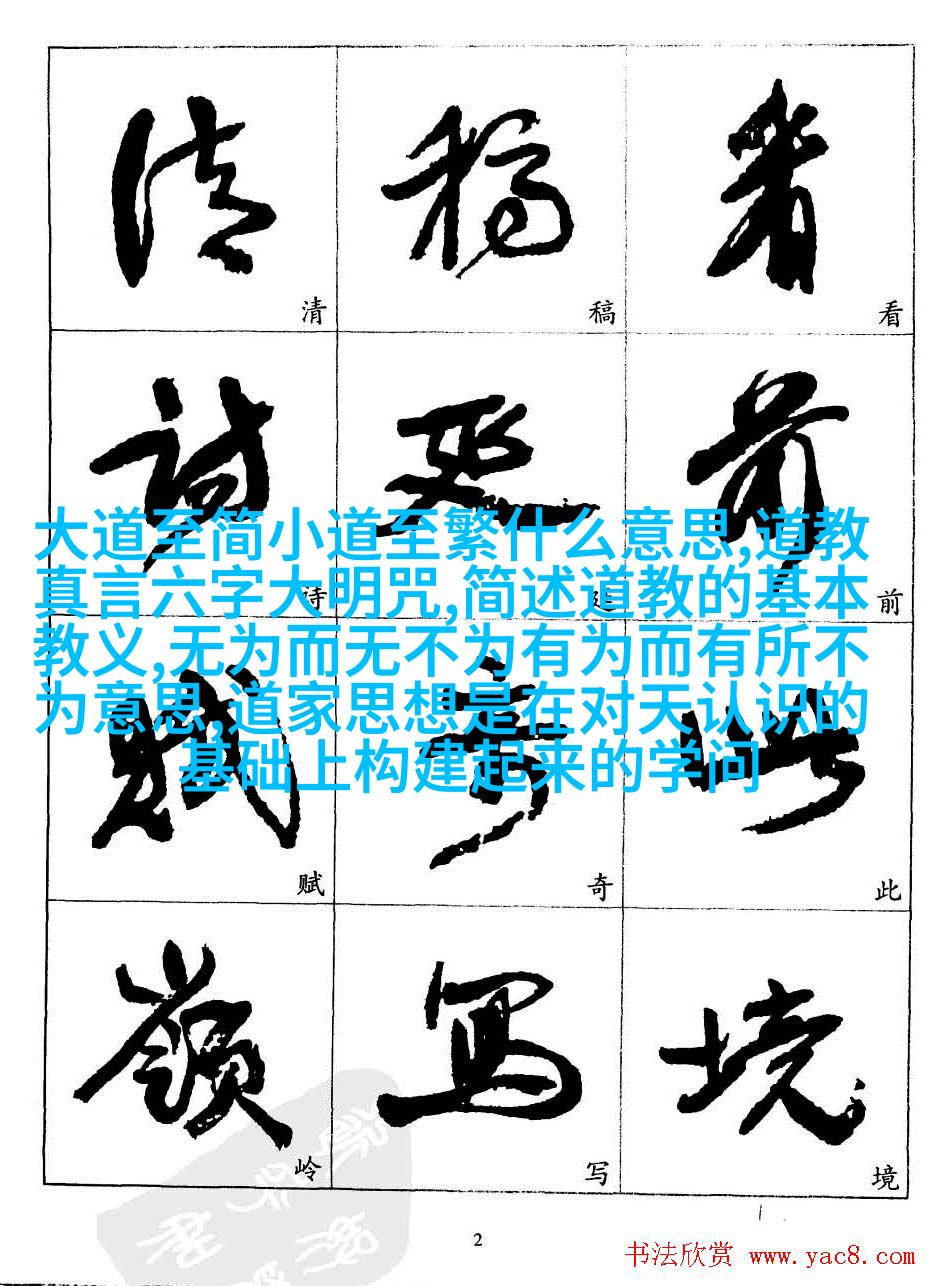 清 稿 看
诗 延 前
大道至简小道至繁什么意思,道教
真言六字大明咒,简述道教的基本
教义,无为而无不为有为而有所不
为意思,道家思想是在对天认识的
基础上构建起来的学问
赋 奇 此
岭 写 境
2
书法欣赏 www.yac8.com